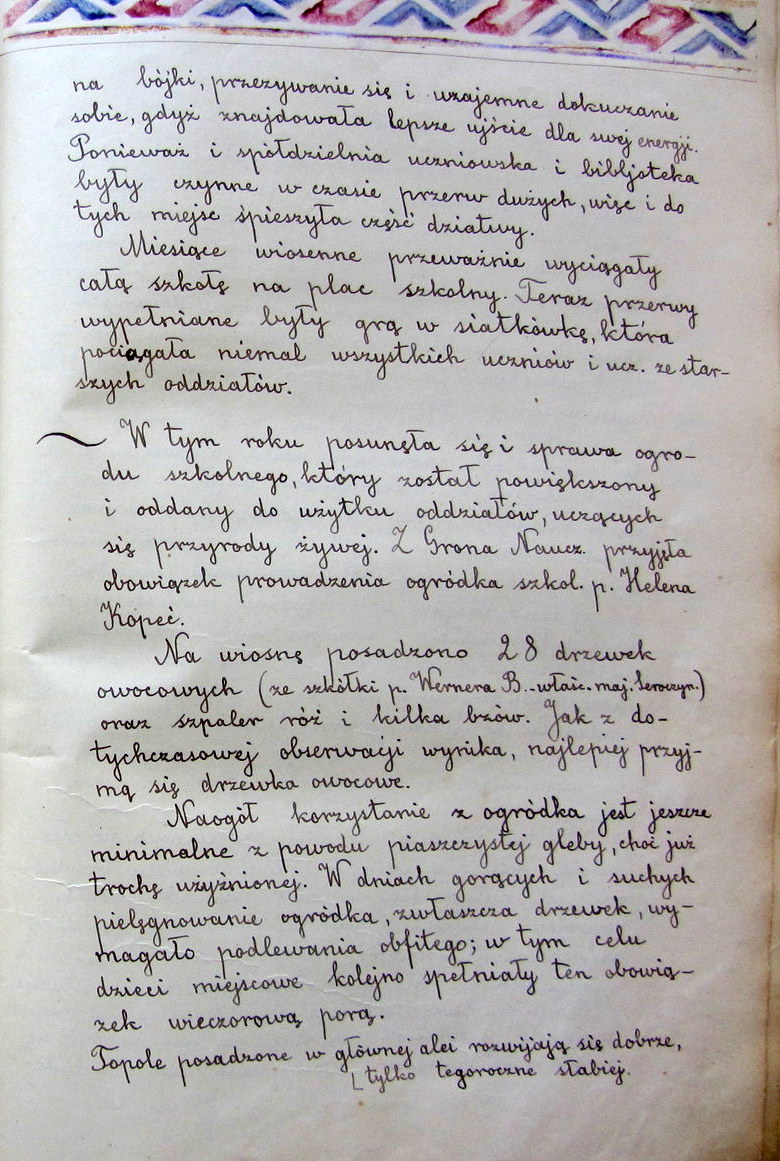 na bójki, przezywanie się i wzajemne dokuczanie
sobie, gdyż znajdowała lepsze ujście dla swej energji.
Ponieważ i spółdzielnia uczniowska i bibljoteka
były czynne w czasie przerw dużych, więc i do
tych miejsc śpieszyła część dziatwy.
Miesiące wiosenne przeważnie wyciągały
całą szkołę na plac szkolny. Teraz przerwy
wypełniane były grą w siatkówkę, która
pociągała niemal wszystkich uczniów i ucz. ze star-
szych oddziałów.
W tym roku posunęła się i sprawa ogro-
du szkolnego, który został powiększony
i oddany do użytku oddziałów, uczących
się przyrody żywej. Z Grona Naucz. przyjęła
obowiązek prowadzenia ogródka szkol. p. Helena
Kopeć.
Na wiosnę posadzono 28 drzewek
owocowych (ze szkółki p. Wernera B. - właśc. maj. Seroczyn.)
oraz szpaler róż i kilka bzów. Jak z do-
tychczasowej obserwacji wynika, najlepiej przyj-
mą się drzewka owocowe.
Naogół korzystanie z ogródka jest jeszcze
minimalne z powodu piaszczystej gleby, choć już
trochę użyźnionej. W dniach gorących i suchych
pielęgnowanie ogródka, zwłaszcza drzewek, wy-
magało podlewania obfitego; w tym celu
dzieci miejscowe kolejno spełniały ten obowią-
zek wieczorową porą.
Topole posadzone w głównej alei rozwijają się dobrze,
tylko tegoroczne słabiej.